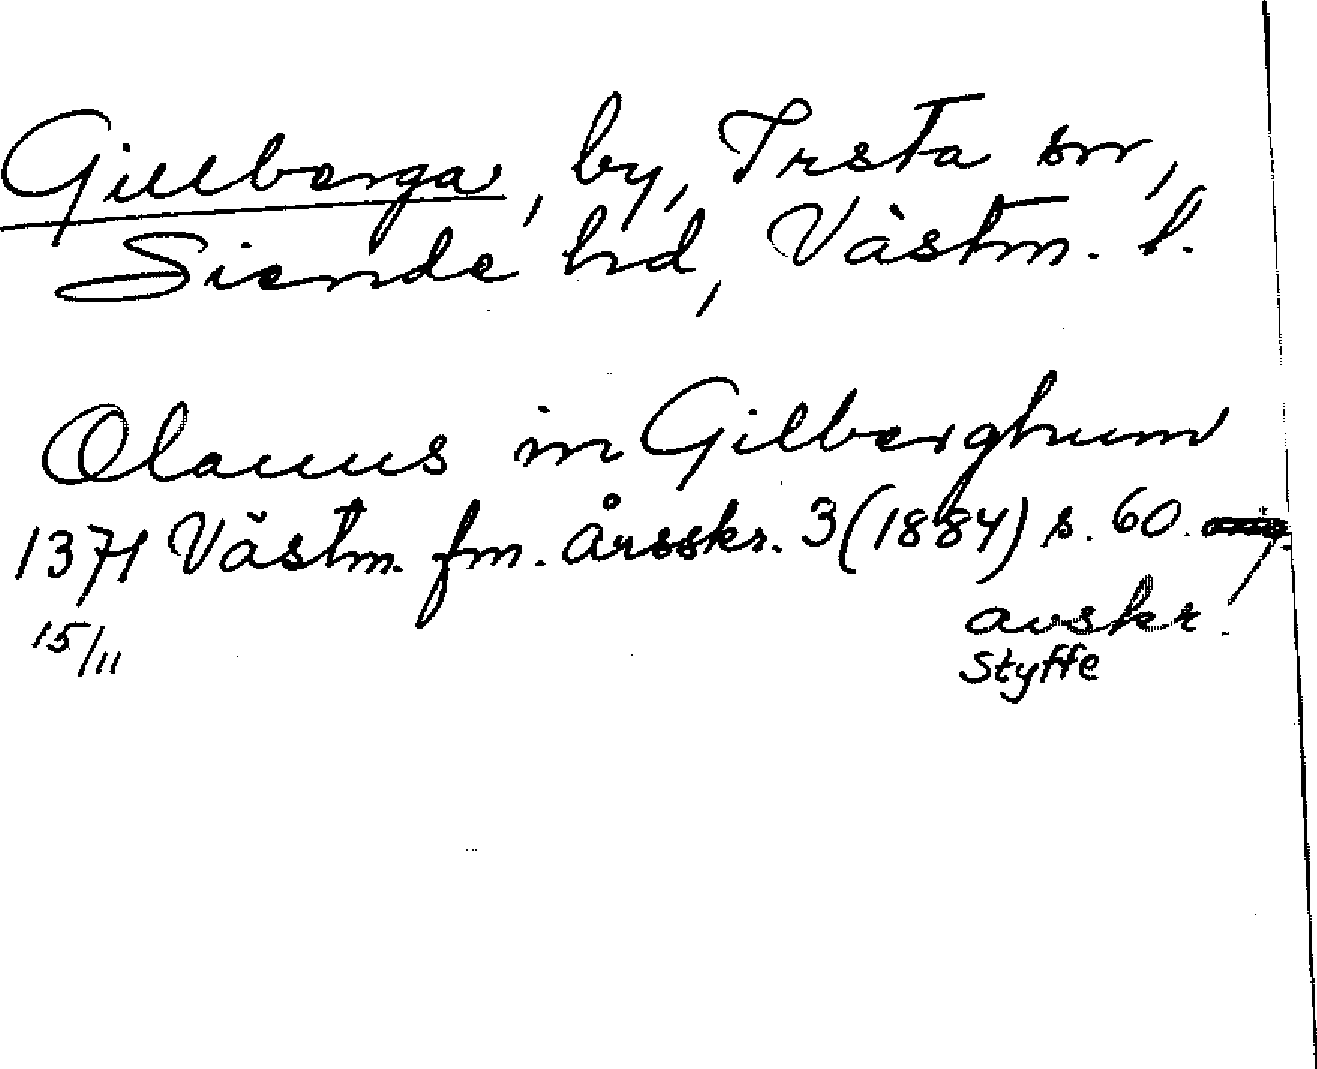 Gillberga, by, Irsta sn,
Siende hd, Västm. l.
Olauus in Gilberghum
1371 Västm. fm. årsskr. 3 (1884) s. 60.
15/11
avskr.
Styffe